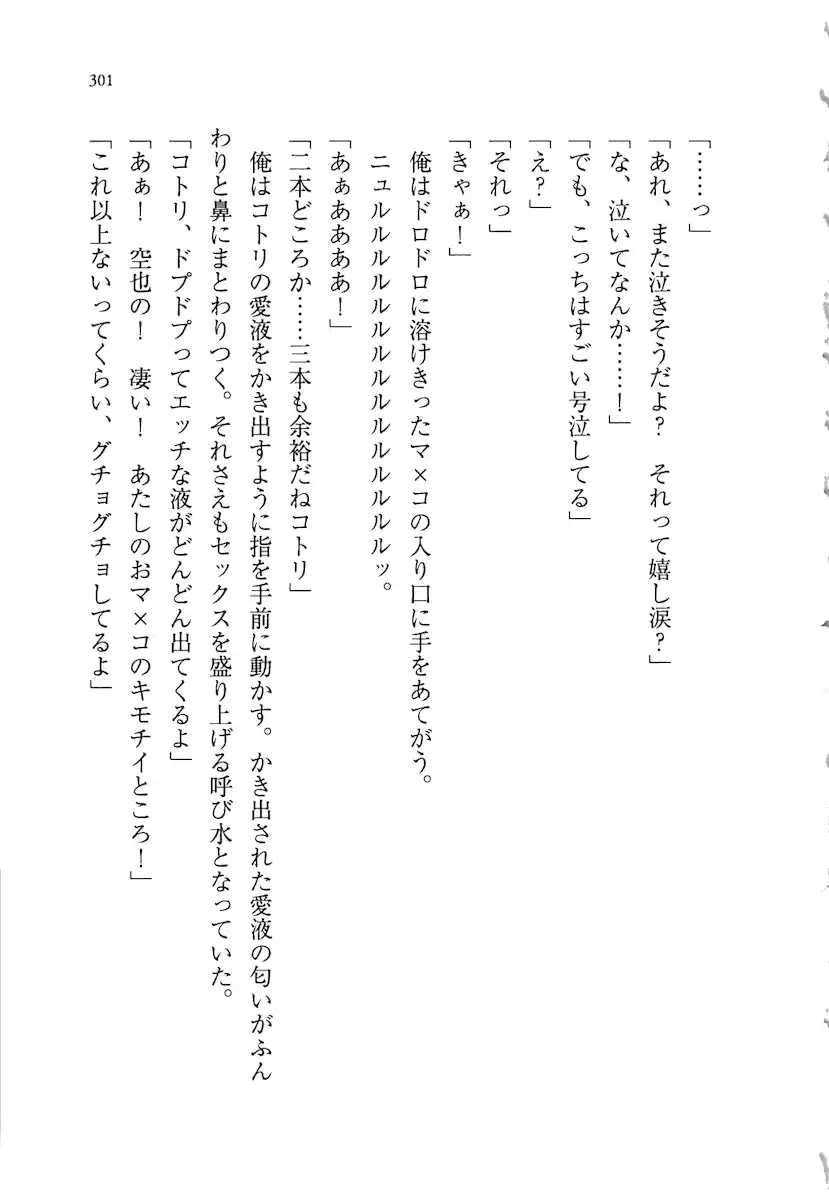 301
「……っ」
「あれ、また泣きそうだよ？　それって嬉し涙？」
「な、泣いてなんか……！」
「でも、こっちはすごい号泣してる」
「え？」
「それっ」
「きゃぁ！」
　俺はドロドロに溶けきったマ×コの入り口に手をあてがう。
　ニュルルルルルルルルルルルルルルルルッ。
「あぁああああ！」
「二本どころか……三本も余裕だねコトリ」
　俺はコトリの愛液をかき出すように指を手前に動かす。かき出された愛液の匂いがふん
わりと鼻にまとわりつく。それさえもセックスを盛り上げる呼び水となっていた。
「コトリ、ドプドプってエッチな液がどんどん出てくるよ」
「あぁ！　空也の！　凄い！　あたしのおマ×コのキモチイところ！」
「これ以上ないってくらい、グチョグチョしてるよ」